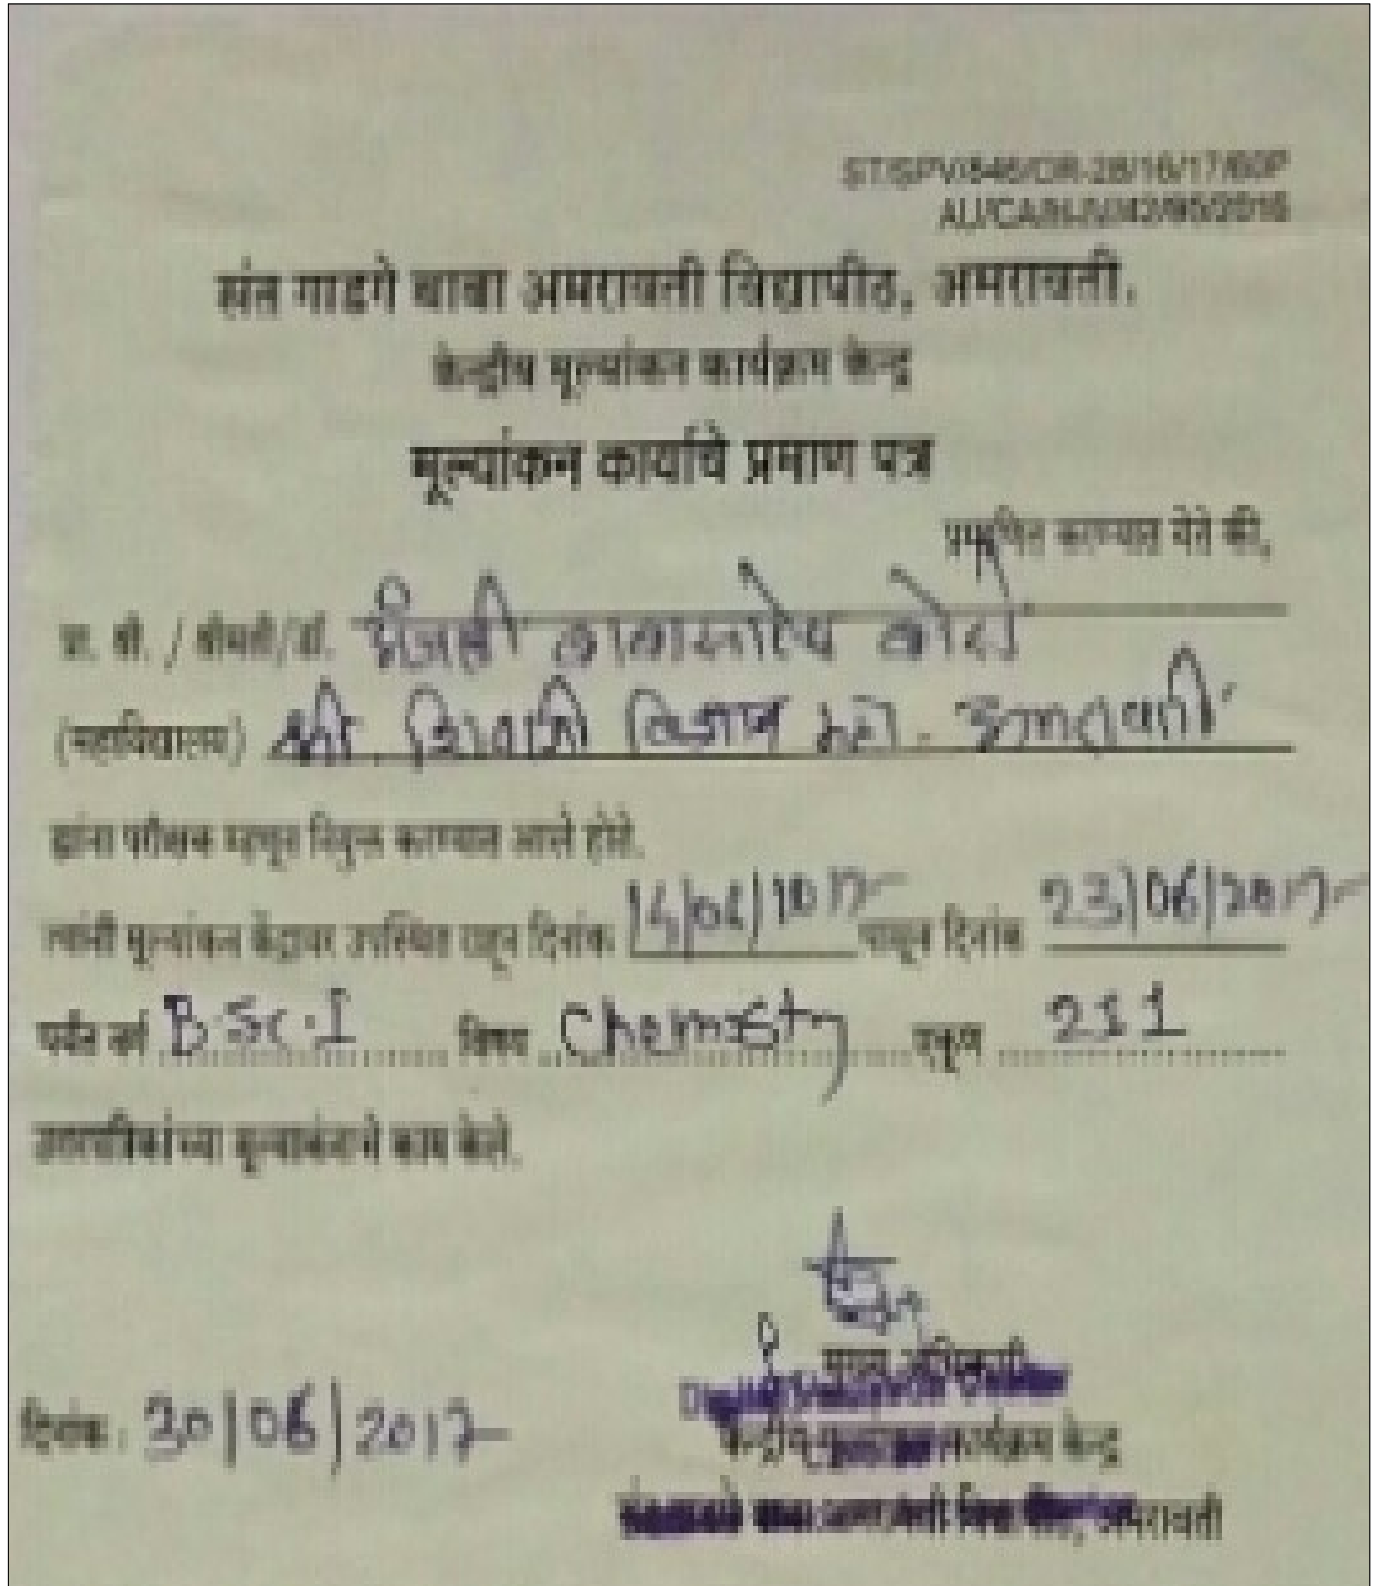 संत गाडगे बाबा अमरावती विद्यापीठ, अमरावती.
केन्द्रीय मूल्यांकन कार्यक्रम केन्द्र
मूल्यांकन कार्याचे प्रमाण पत्र
प्रमाणित करण्यात येते की,
प्रा. श्री. / श्रीमती/डॉ.
(महाविद्यालय) श्री. शिवाजी विज्ञान महा. अमरावती
ह्यांना परीक्षक म्हणून नियुक्त करण्यात आले होते.
त्यांनी मूल्यांकन केंद्रावर उपस्थित राहून दिनांक पासून दिनांक 23/06/2017
पर्यंत वर्ग B.Sc.I विषय Chemistry एकूण 211
उत्तरपत्रिकांच्या मूल्यांकनाचे काम केले.
मुख्य अधिकारी
दिनांक : 30/06/2017
केन्द्रीय मूल्यांकन कार्यक्रम केन्द्र
संत गाडगे बाबा अमरावती विद्यापीठ, अमरावती